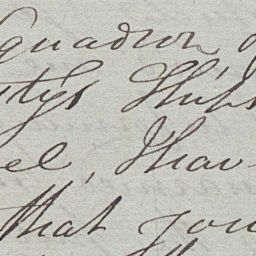 squadron,
stys Ships
el, I hav
that you